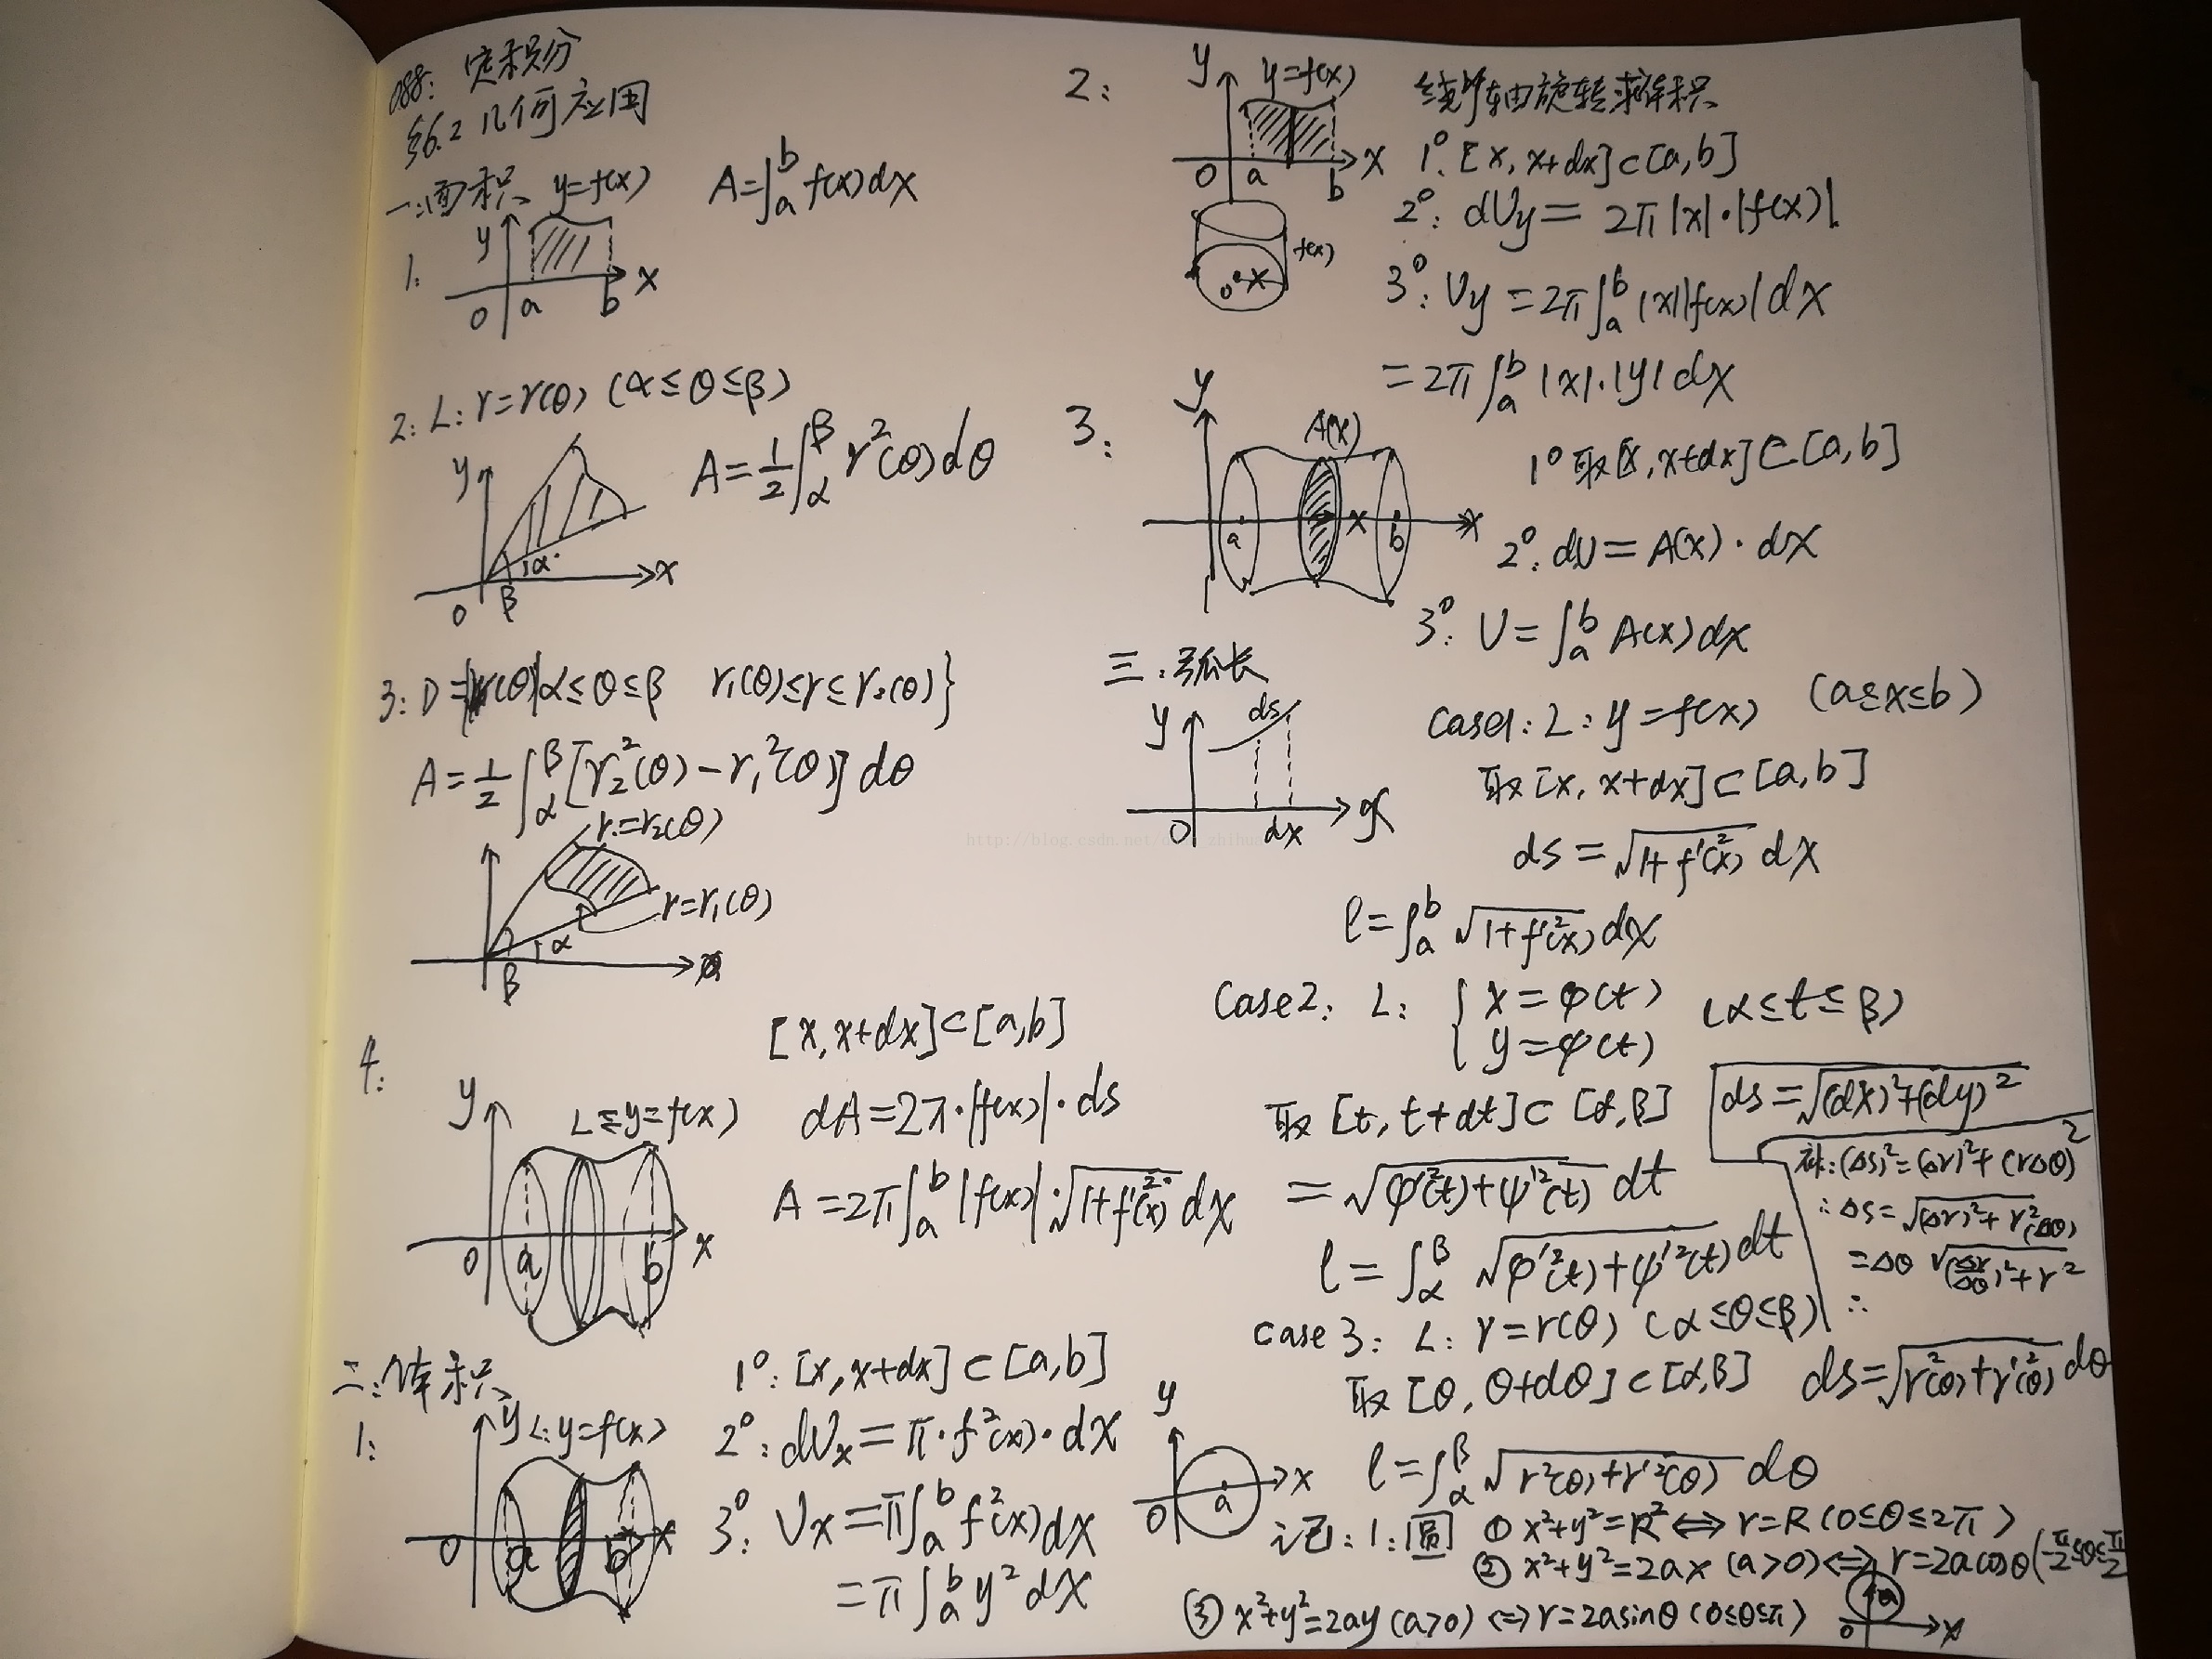 088: 定积分
§6.2 几何应用
一:面积 y=f(x) A=∫_a^b f(x)dx
1.
y
0 a b x
2: L: r=r(θ) (α≤θ≤β)
A=1/2 ∫_α^β r²(θ)dθ
y
α
0 β x
3: D= (θ)|α≤θ≤β r₁(θ)≤r≤r₂(θ)}
A=1/2 ∫_α^β [r₂²(θ)-r₁²(θ)]dθ
r=r₂(θ)
r=r₁(θ)
α
β
4: [x, x+dx]⊂[a,b]
y L: y=f(x) dA=2π·|f(x)|·ds
A=2π∫_a^b |f(x)|·√(1+f'²(x)) dx
0 a b x
二:体积 1°: [x, x+dx]⊂[a,b]
1: y L: y=f(x) 2°: dVx=π·f²(x)·dx
0 a b x 3°: Vx=π∫_a^b f²(x)dx
=π∫_a^b y²dx
2: y y=f(x) 绕y轴旋转求体积
0 a b x 1°. [x, x+dx]⊂[a,b]
2°: dVy=2π|x|·|f(x)|
f(x)
0 x
3°: Vy=2π∫_a^b |x||f(x)|dx
=2π∫_a^b |x|·|y|dx
3: y A(x) 1° 取[x, x+dx]⊂[a,b]
a x b x
2°: dV=A(x)·dx
3°: V=∫_a^b A(x)dx
三:弧长
y ds
0 dx x
Case1: L: y=f(x) (a≤x≤b)
取[x, x+dx]⊂[a,b]
ds=√(1+f'²(x)) dx
l=∫_a^b √(1+f'²(x)) dx
Case2: L: { x=φ(t) (α≤t≤β)
y=φ(t)
取[t, t+dt]⊂[α,β] ds=√((dx)²+(dy)²)
=√(φ'²(t)+ψ'²(t)) dt
l=∫_α^β √(φ'²(t)+ψ'²(t)) dt
补:(Δs)²=(Δr)²+(rΔθ)²
∴Δs=√((Δr)²+r²(Δθ)²)
=Δθ√((Δr/Δθ)²+r²)
∴
Case 3: L: r=r(θ) (α≤θ≤β)
取[θ, θ+dθ]⊂[α,β] ds=√(r²(θ)+r'²(θ)) dθ
l=∫_α^β √(r²(θ)+r'²(θ)) dθ
y
0 a x
记:1:圆 ① x²+y²=R² ⟺ r=R (0≤θ≤2π)
② x²+y²=2ax (a>0) ⟺ r=2acosθ(-π/2≤θ≤π/2
③ x²+y²=2ay (a>0) ⟺ r=2asinθ (0≤θ≤π)
a
0 x